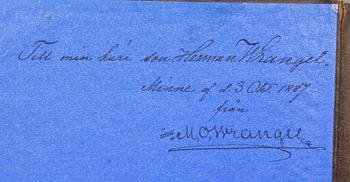 Till min kära son Herman Wrangel.
Minne af d. 3 Okt. 1887
från
M.O. Wrangel